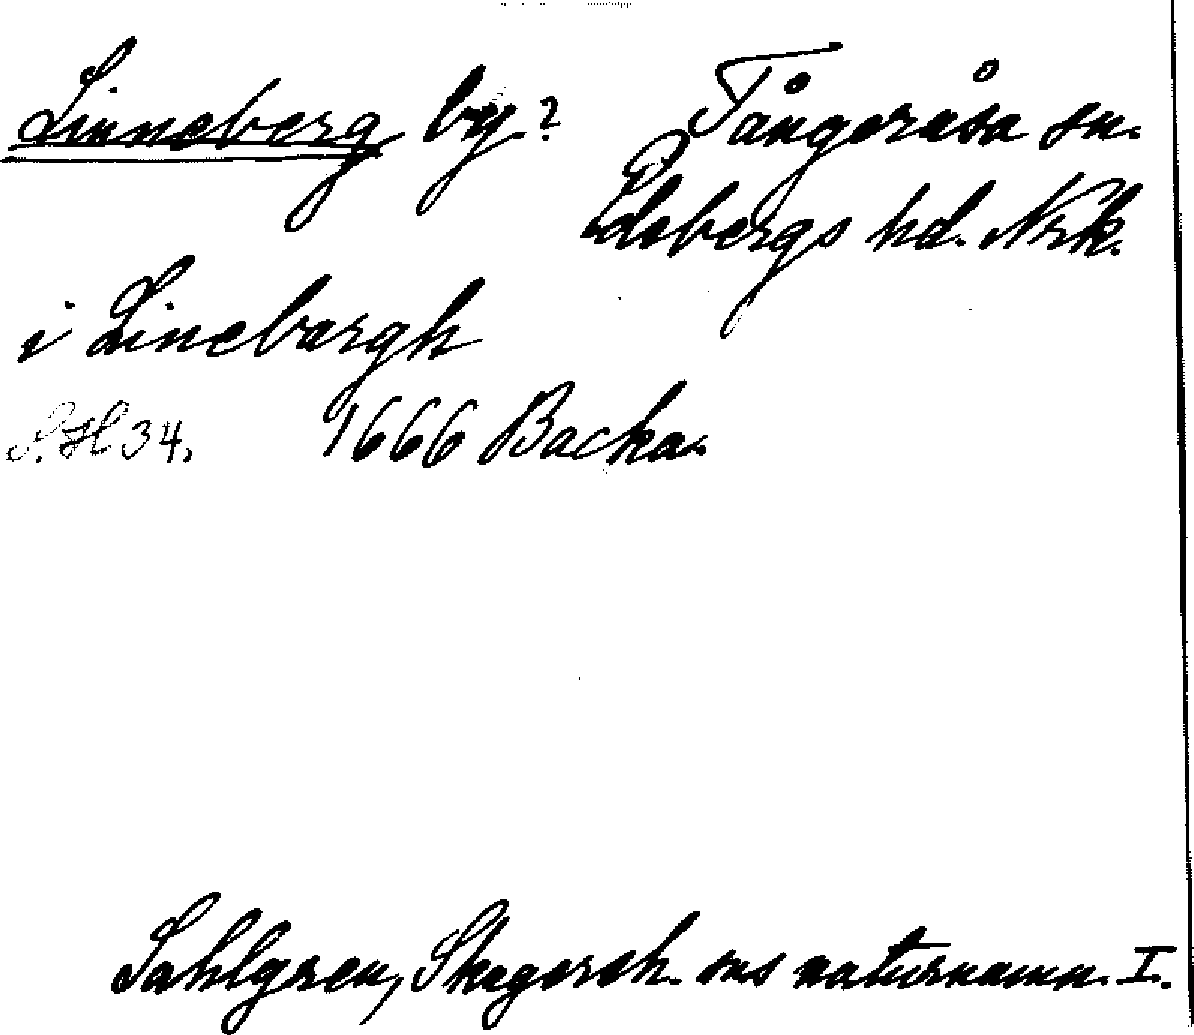 Linneberg by? Tångeråsa sn.
Edsbergs hd. Nrk.
i Linebargh
S. H 34. 1666 Backa.
Sahlgren, Skagersh. sns naturnamn. I.